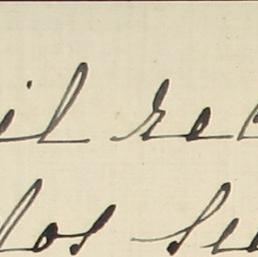 il re
los se